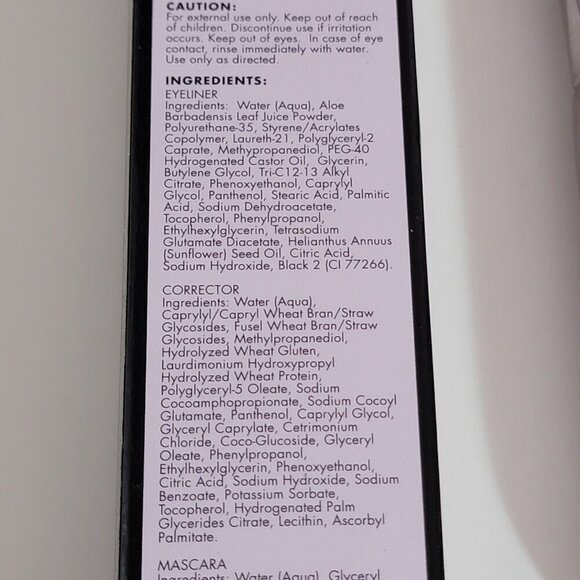 CAUTION:
For external use only. Keep out of reach
of children. Discontinue use if irritation
occurs. Keep out of eyes. In case of eye
contact, rinse immediately with water.
Use only as directed.
INGREDIENTS:
EYELINER
Ingredients: Water (Aqua), Aloe
Barbadensis Leaf Juice Powder,
Polyurethane-35, Styrene/Acrylates
Copolymer, Laureth-21, Polyglyceryl-2
Caprate, Methypropanediol, PEG-40
Hydrogenated Castor Oil, Glycerin,
Butylene Glycol, Tri-C12-13 Alkyl
Citrate, Phenoxyethanol, Caprylyl
Glycol, Panthenol, Stearic Acid, Palmitic
Acid, Sodium Dehydroacetate,
Tocopherol, Phenylpropanol,
Ethylhexylglycerin, Tetrasodium
Glutamate Diacetate, Helianthus Annuus
(Sunflower) Seed Oil, Citric Acid,
Sodium Hydroxide, Black 2 (CI 77266).
CORRECTOR
Ingredients: Water (Aqua),
Caprylyl/Capryl Wheat Bran/Straw
Glycosides, Fusel Wheat Bran/Straw
Glycosides, Methylpropanediol,
Hydrolyzed Wheat Gluten,
Laurdimonium Hydroxypropyl
Hydrolyzed Wheat Protein,
Polyglyceryl-5 Oleate, Sodium
Cocoamphopropionate, Sodium Cocoyl
Glutamate, Panthenol, Caprylyl Glycol,
Glyceryl Caprylate, Cetrimonium
Chloride, Coco-Glucoside, Glyceryl
Oleate, Phenylpropanol,
Ethylhexylglycerin, Phenoxyethanol,
Citric Acid, Sodium Hydroxide, Sodium
Benzoate, Potassium Sorbate,
Tocopherol, Hydrogenated Palm
Glycerides Citrate, Lecithin, Ascorbyl
Palmitate.
MASCARA
Ingredients: Water (Aqua), Glyceryl